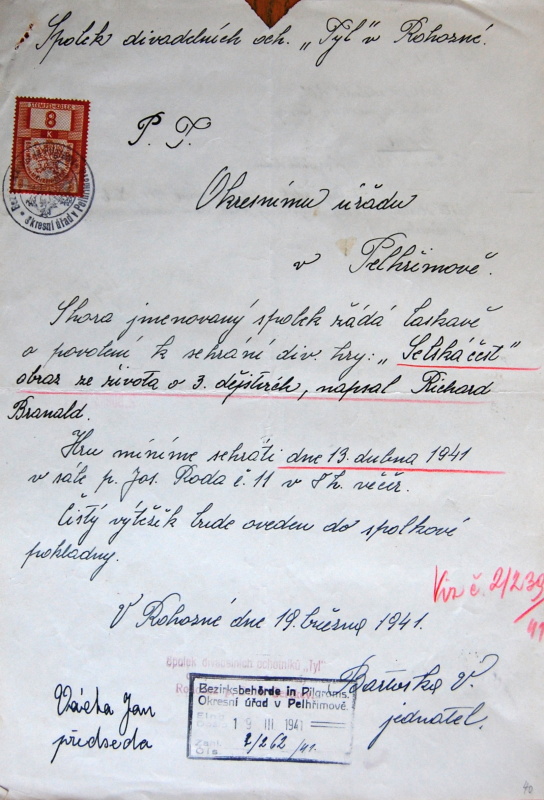 Spolek divadelních och. „Tyl" v Rohozné.
STEMPELMARKE
8
K
Okresní úřad v Pelhřimově
P. T.
Okresnímu úřadu
v Pelhřimově.
Shora jmenovaný spolek žádá laskavě
o povolení k sehrání div. hry: „Selská čest"
obraz ze života o 3. dějstvích, napsal Richard
Branald.
Hru míníme sehráti dne 13. dubna 1941
v sále p. Jos. Roda č. 11 v 8 h. večer.
Čistý výtěžek bude oveden do spolkové
pokladny.
Viz č. 2/239/41
V Rohozné dne 19. března 1941.
spolek divadelních ochotníků „Tyl"
Bezirksbehörde in Pilgrams.
Okresní úřad v Pelhřimově.
Eing.
19 III 1941
Zahl
Čís.
2/262/41.
Bártoška V.
jednatel.
Jan
předseda
40